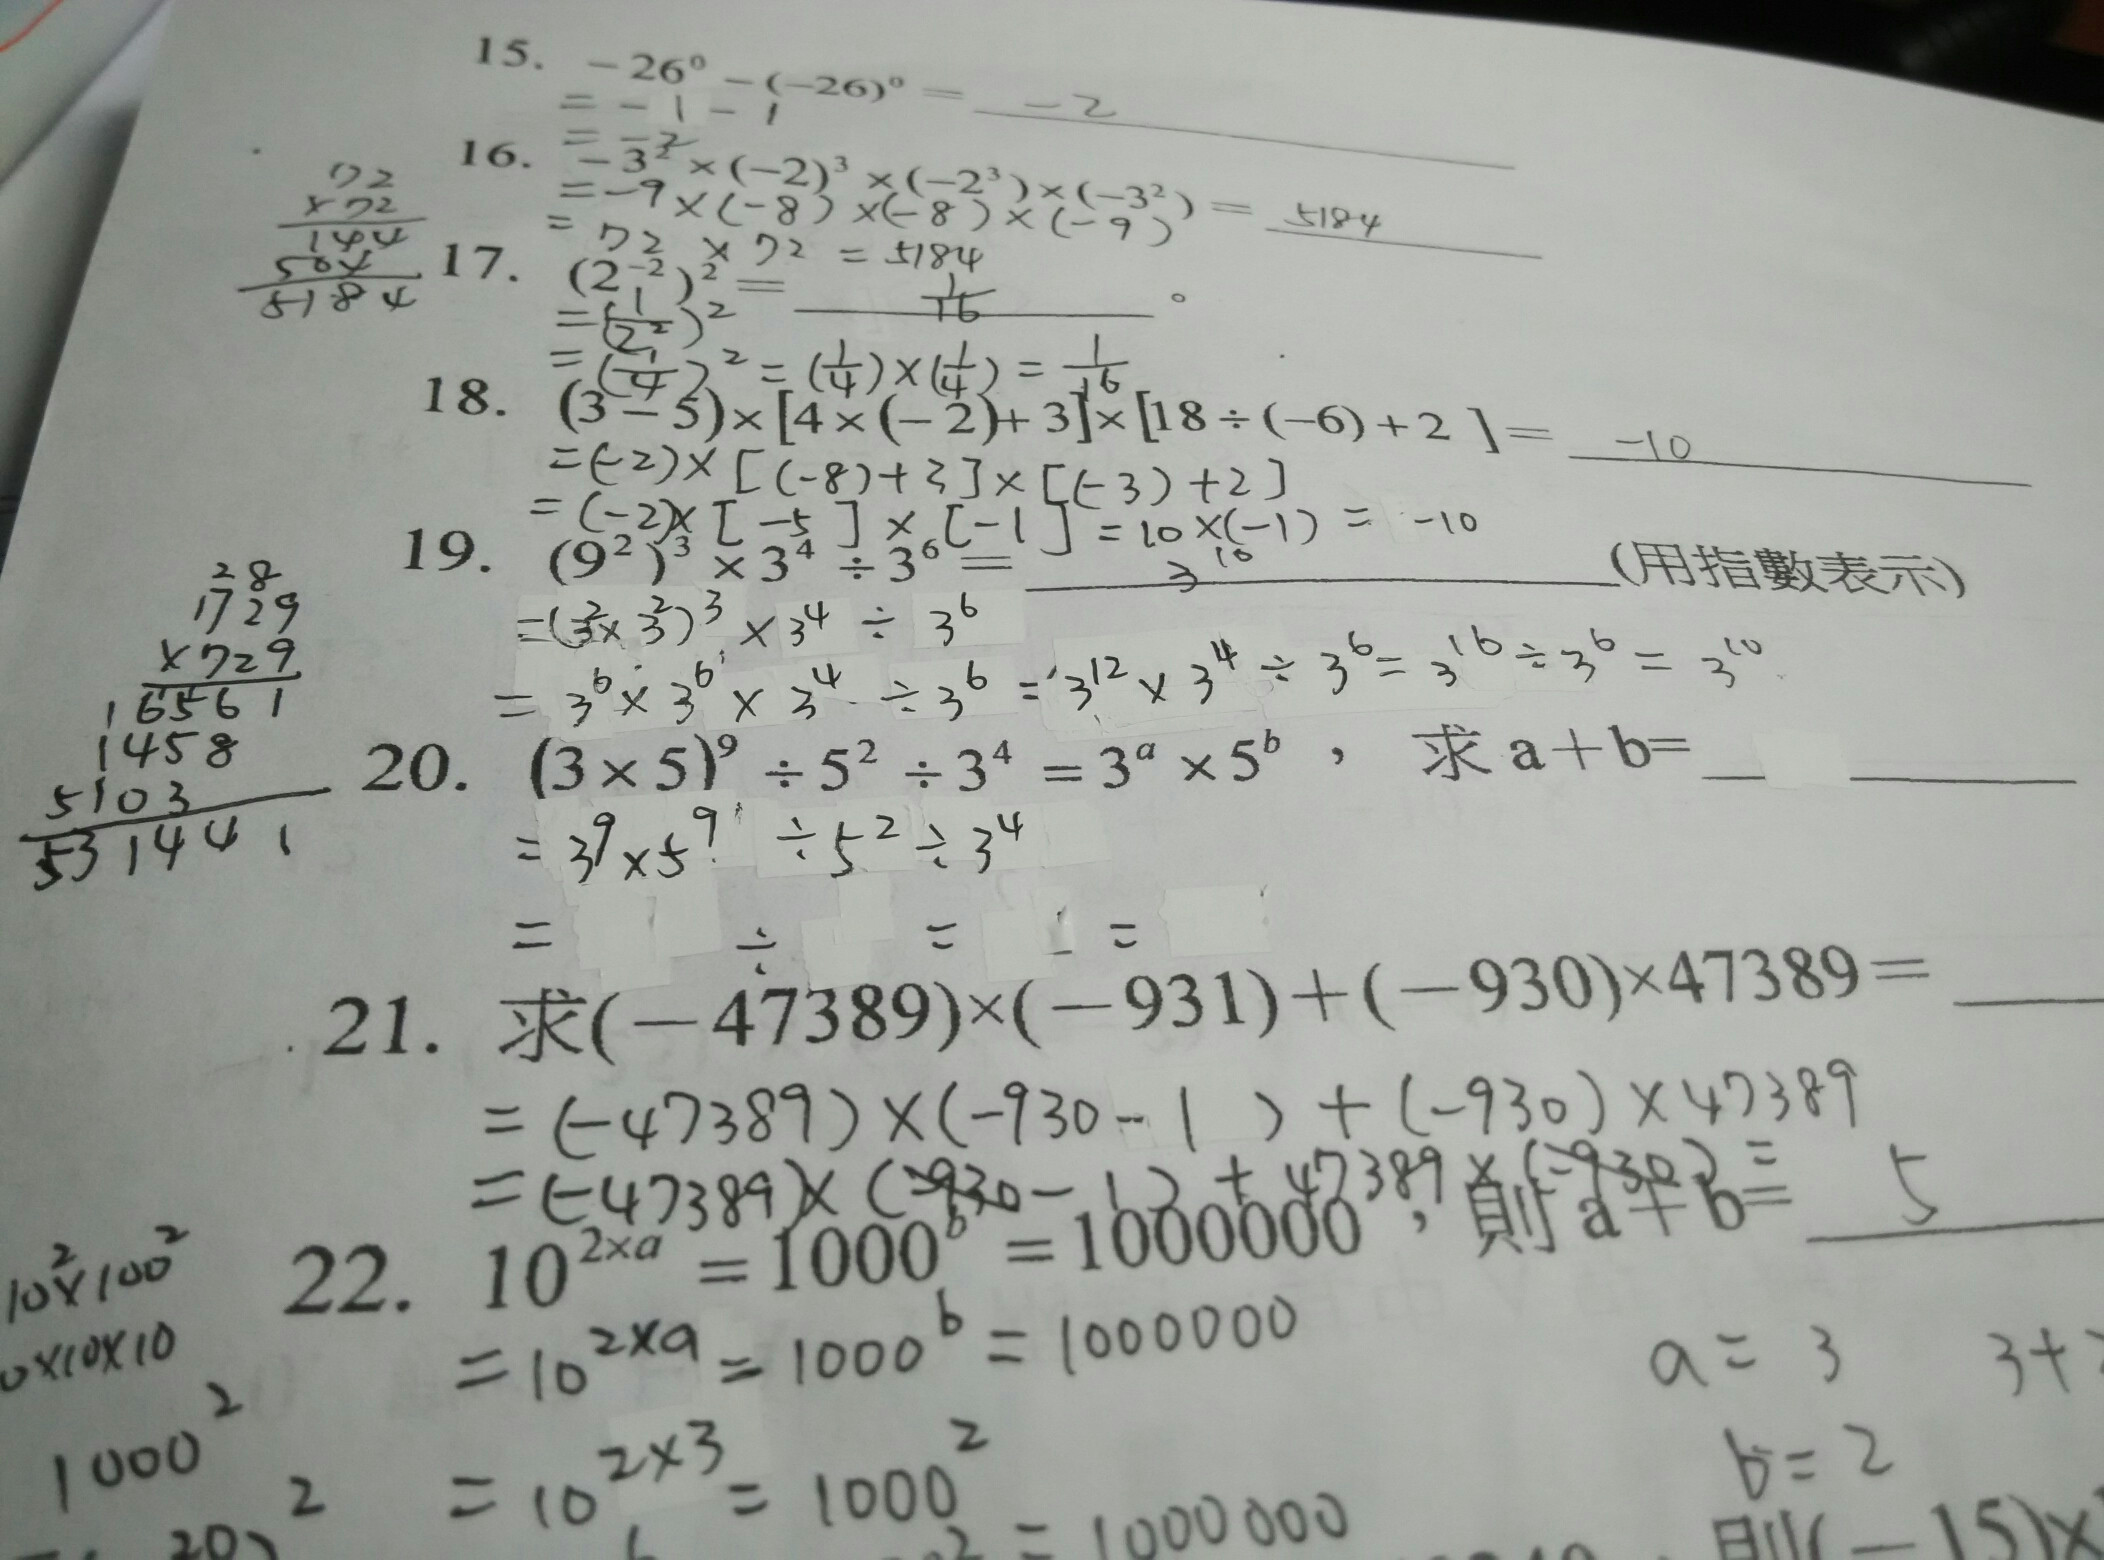 15. −26⁰ − (−26)⁰ = −2
= −1 − 1
= −2
16. −3² × (−2)³ × (−2³) × (−3²) = 5184
= −9 × (−8) × (−8) × (−9)
= 72 × 72 = 5184
72
× 72
144
504
5184
17. (2⁻²)² = 1/16 。
= (1/2²)²
= (1/4)² = (1/4) × (1/4) = 1/16
18. (3 − 5) × [4 × (−2) + 3] × [18 ÷ (−6) + 2 ] = −10
= (−2) × [(−8) + 3] × [(−3) + 2]
= (−2) × [−5] × [−1] = 10 × (−1) = −10
19. (9²)³ × 3⁴ ÷ 3⁶ = 3¹⁰ (用指數表示)
= (3² × 3²)³ × 3⁴ ÷ 3⁶
= 3⁶ × 3⁶ × 3⁴ ÷ 3⁶ = 3¹² × 3⁴ ÷ 3⁶ = 3¹⁶ ÷ 3⁶ = 3¹⁰
28
1729
× 729
16561
1458
5103
531441
20. (3 × 5)⁹ ÷ 5² ÷ 3⁴ = 3ᵃ × 5ᵇ , 求 a + b =
= 3⁹ × 5⁹ ÷ 5² ÷ 3⁴
= ÷ = =
21. 求(−47389)×(−931)+(−930)×47389 =
= (−47389) × (−930 − 1 ) + (−930) × 47389
= (−47389) × (−930 − 1) + 47389 × (−930) =
22. 10²ˣᵃ = 1000ᵇ = 1000000 , 則 a + b = 5
= 10²ˣᵃ = 1000ᵇ = 1000000
a = 3 3+
= 10²ˣ³ = 1000²
b = 2
10² × 100²
0×10×10
1000²
= 1000000
則(−15)×